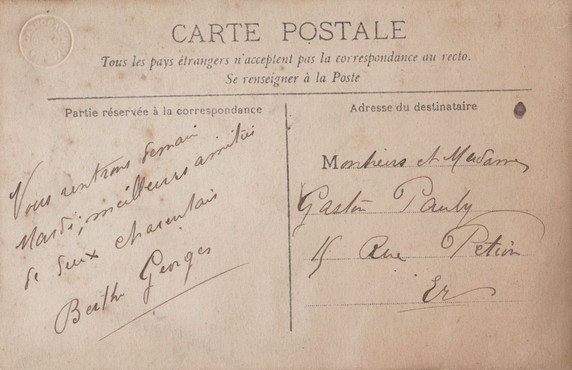 CARTE POSTALE
Tous les pays étrangers n'acceptent pas la correspondance au recto.
Se renseigner à la Poste
Partie réservée à la correspondance
Adresse du destinataire
Vous rentrons demain
Mardi, meilleurs amitiés
de deux charentais
Berthe Georges
Monsieurs et Madame
Gaston Pauly
15 Rue Pétion